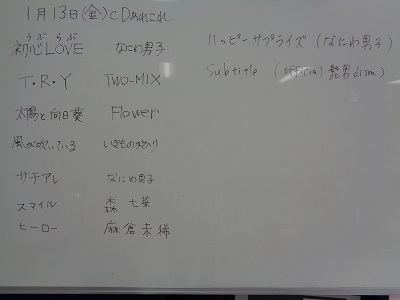 1月13日(金)CDあれこれ
うぶらぶ
初心LOVE なにわ男子
T・R・Y TWO-MIX
太陽と向日葵 Flower
風が吹いている いきものがかり
サチアレ なにわ男子
スマイル 森七菜
ヒーロー 麻倉未稀
ハッピーサプライズ(なにわ男子)
Subtitle (official髭男dism)